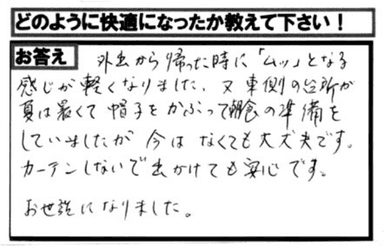 どのように快適になったか教えて下さい！
お答え
外出から帰った時に「ムッ」となる
感じが軽くなりました。又東側の台所が
夏は暑くて帽子をかぶって朝食の準備を
していましたが今はなくても大丈夫です。
カーテンしないで出かけても安心です。
お世話になりました。